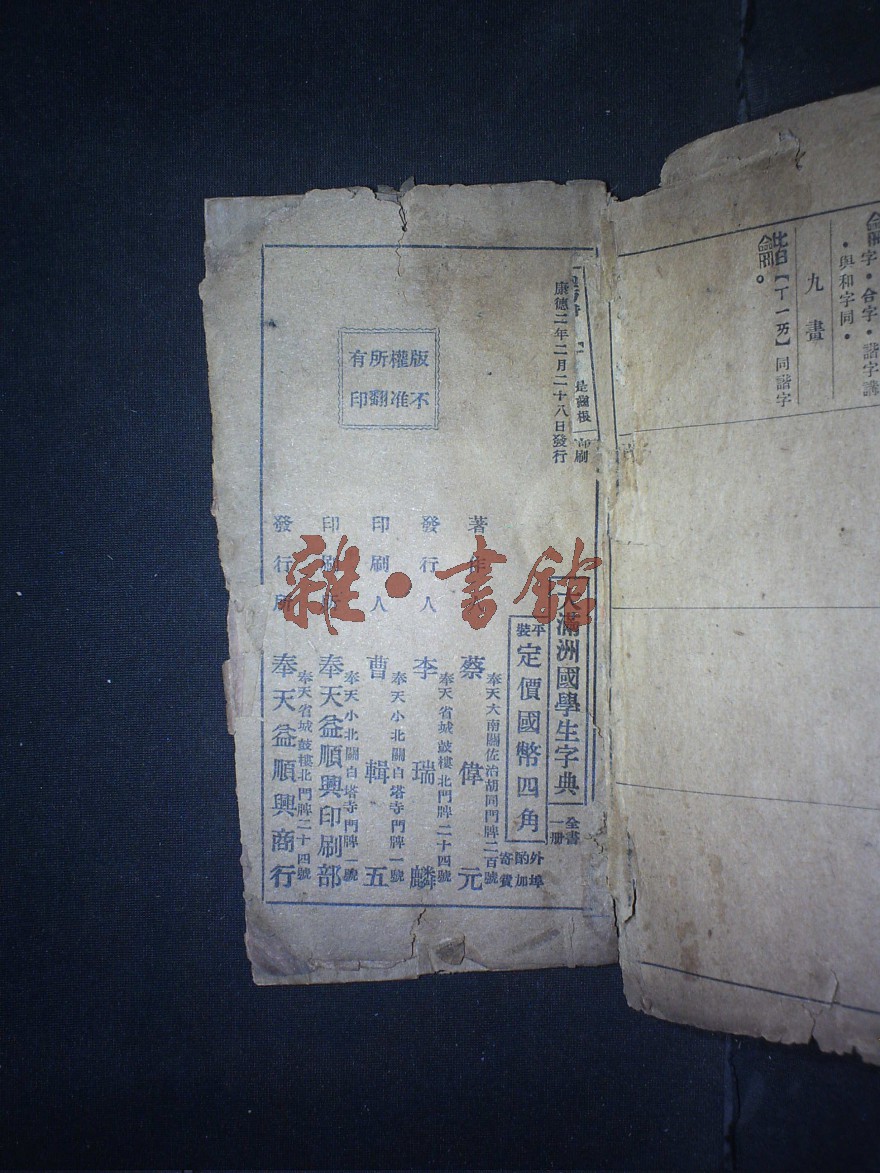 龤字·合字·諧字講
·與和字同·
九畫
【ㄒㄧㄞ】同諧字
是齒根
印刷
康德二年二月二十八日發行
版權所有
不准翻印
大滿洲國學生字典
全書一册
平裝
定價國幣四角
外埠酌加寄費
著作人
蔡偉元
奉天大南關佐治胡同門牌二百號
發行人
李瑞麟
奉天省城鼓樓北門牌二十四號
印刷人
曹輯五
奉天小北關白塔寺門牌一號
印刷所
奉天益順興印刷部
奉天小北關白塔寺門牌一號
發行所
奉天益順興商行
奉天省城鼓樓北門牌二十四號
雜·書館